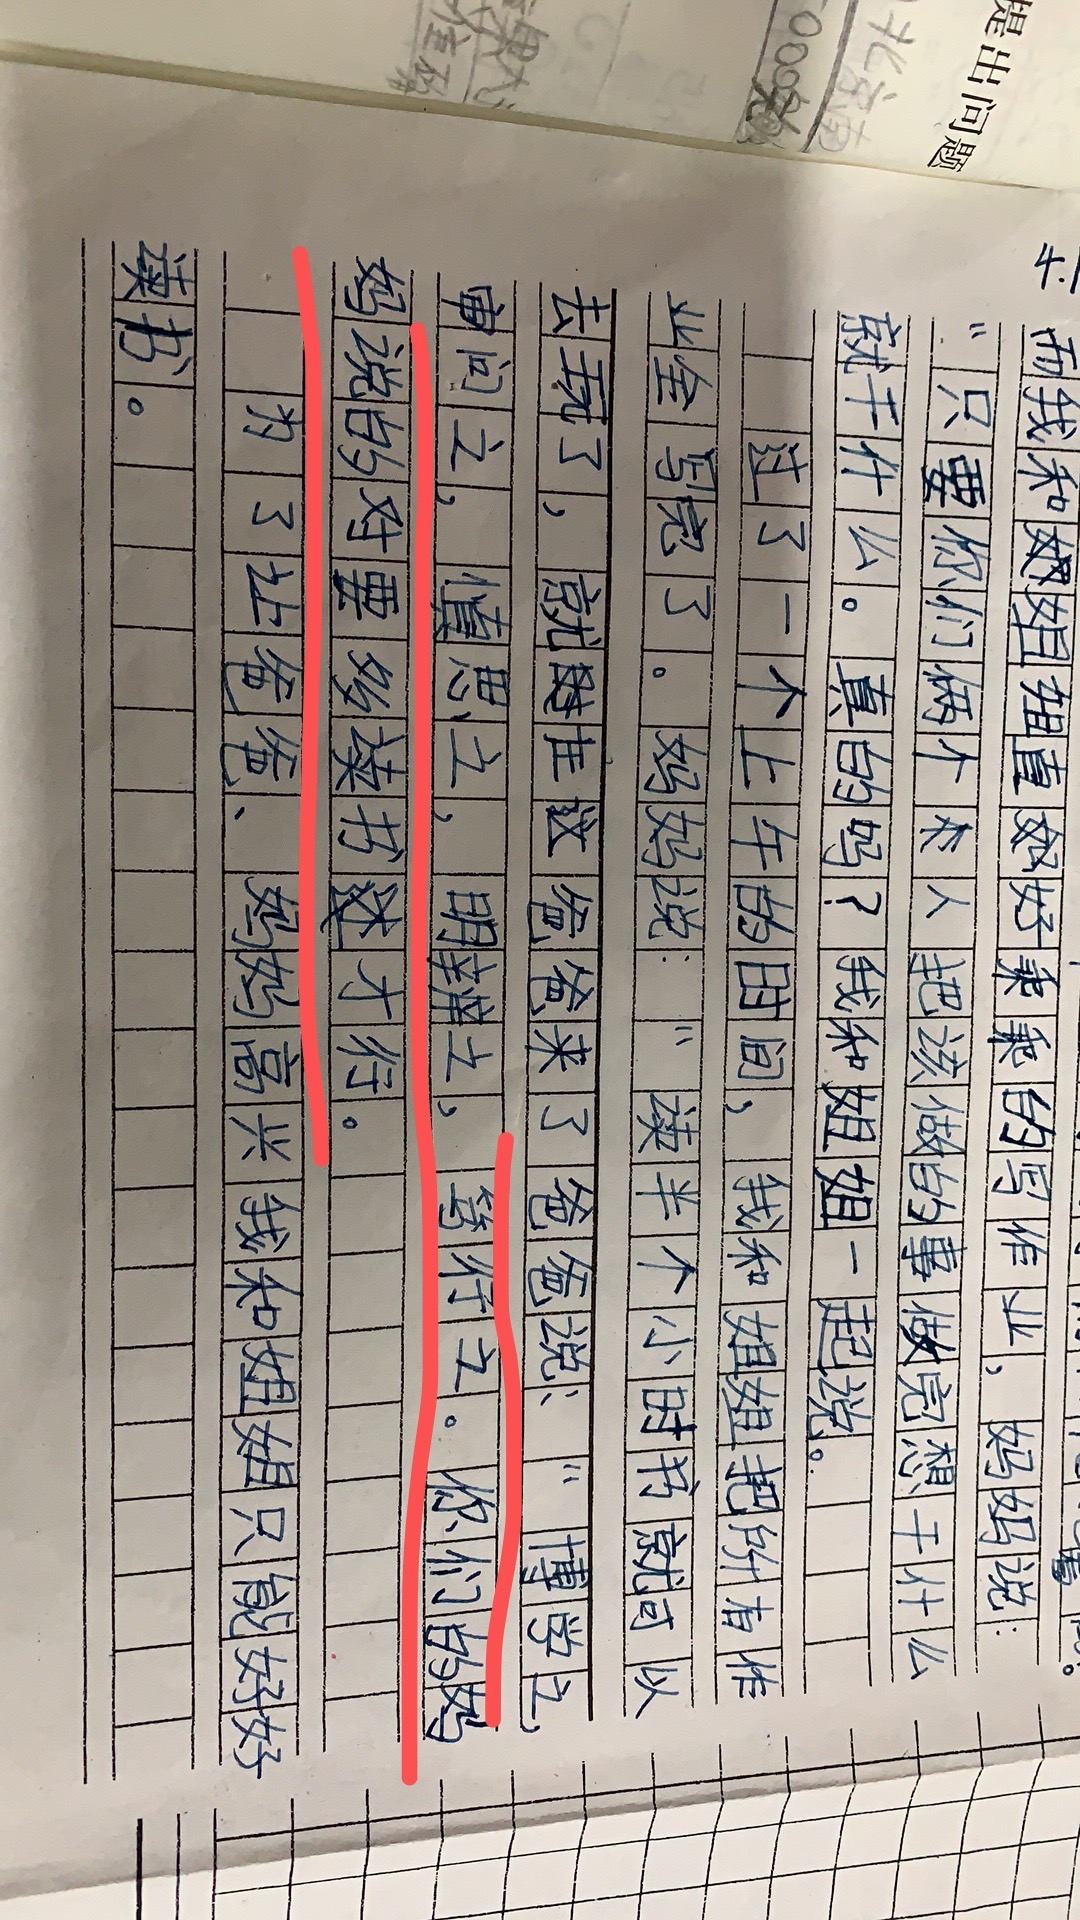 提出问题
4.
而我和姐姐直好好乖乖的写作业，妈妈说：
“只要你们俩个大人把该做的事做完想干什么
就干什么。真的吗？我和姐姐一起说。
过了一个上午的时间，我和姐姐把所有作
业全写完了。妈妈说：“读半个小时书就可以
去玩了，就在这爸爸来了爸爸说：“博学之，
审问之，慎思之，明辩之，笃行之。你们的妈
妈说的对要多读书才行。
为了让爸爸、妈妈高兴我和姐姐只能好好
读书。